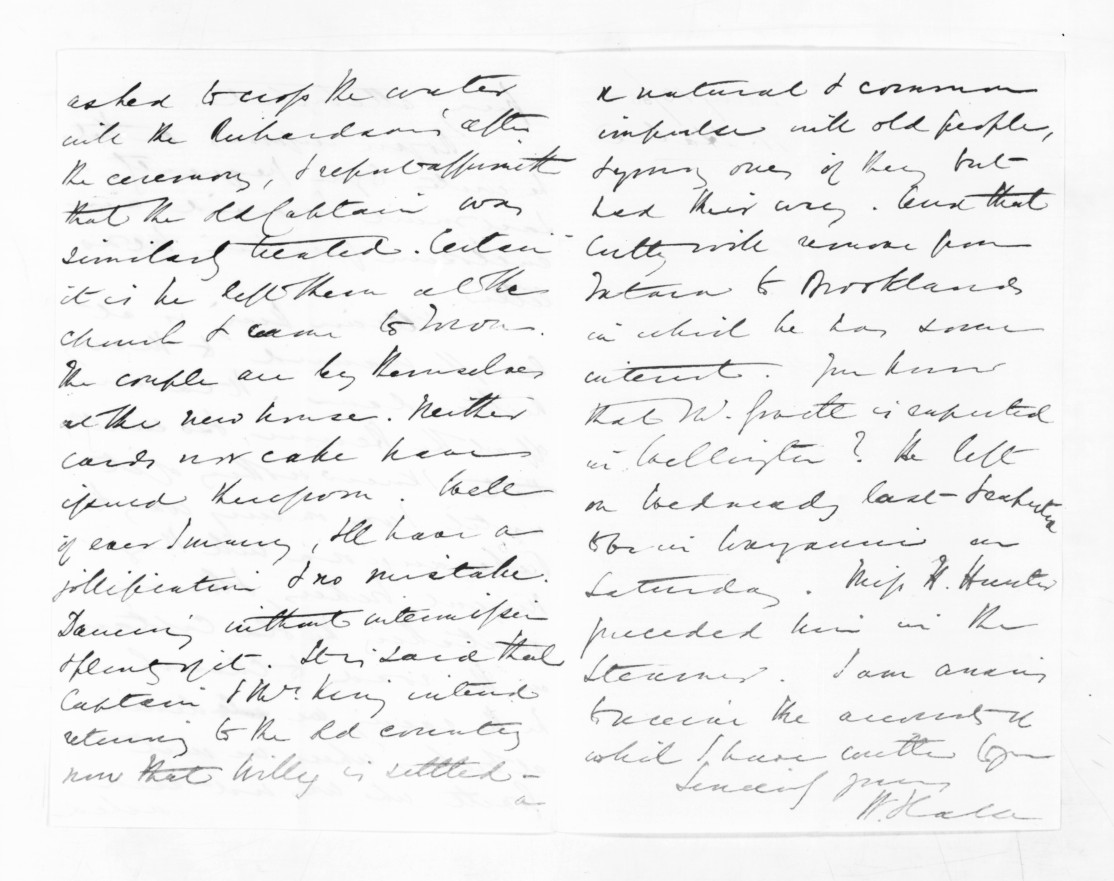 asked to cross the water
with the Richardsons' after
the ceremony, & report affirmeth
that the old Captain was
similarly treated. Certain
it is he left them at the
church & came to Town.
The couple are by themselves
at the new house. Neither
cards nor cake have
issued therefrom. Well
if ever I marry, I'll have a
jollification & no mistake.
Dancing without intermission
& plenty of it. It is said that
Captain & Mrs. King intend
returning to the old country
now that Willy is settled –
a
a natural & common
impulse with old people,
& young ones if they but
had their way. And that
Cutty will remove from
to Brooklands
in which he has some
interest. You know
that W. is expected
in Wellington? He left
on Wednesday last & expected
to be in Wanganui on
Saturday. Miss H. Hunter
preceded him in the
Steamer. I am anxious
to receive the accounts of
which I have written to you
Sincerely yours
W. Halse